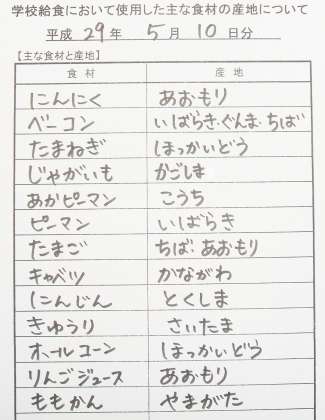 学校給食において使用した主な食材の産地について
平成 29 年 5 月 10 日分
【主な食材と産地】
食材 産地
にんにく あおもり
ベーコン いばらき・ぐんま・ちば
たまねぎ ほっかいどう
じゃがいも かごしま
あかピーマン こうち
ピーマン いばらき
たまご ちば・あおもり
キャベツ かながわ
にんじん とくしま
きゅうり さいたま
ホールコーン ほっかいどう
りんごジュース あおもり
ももかん やまがた